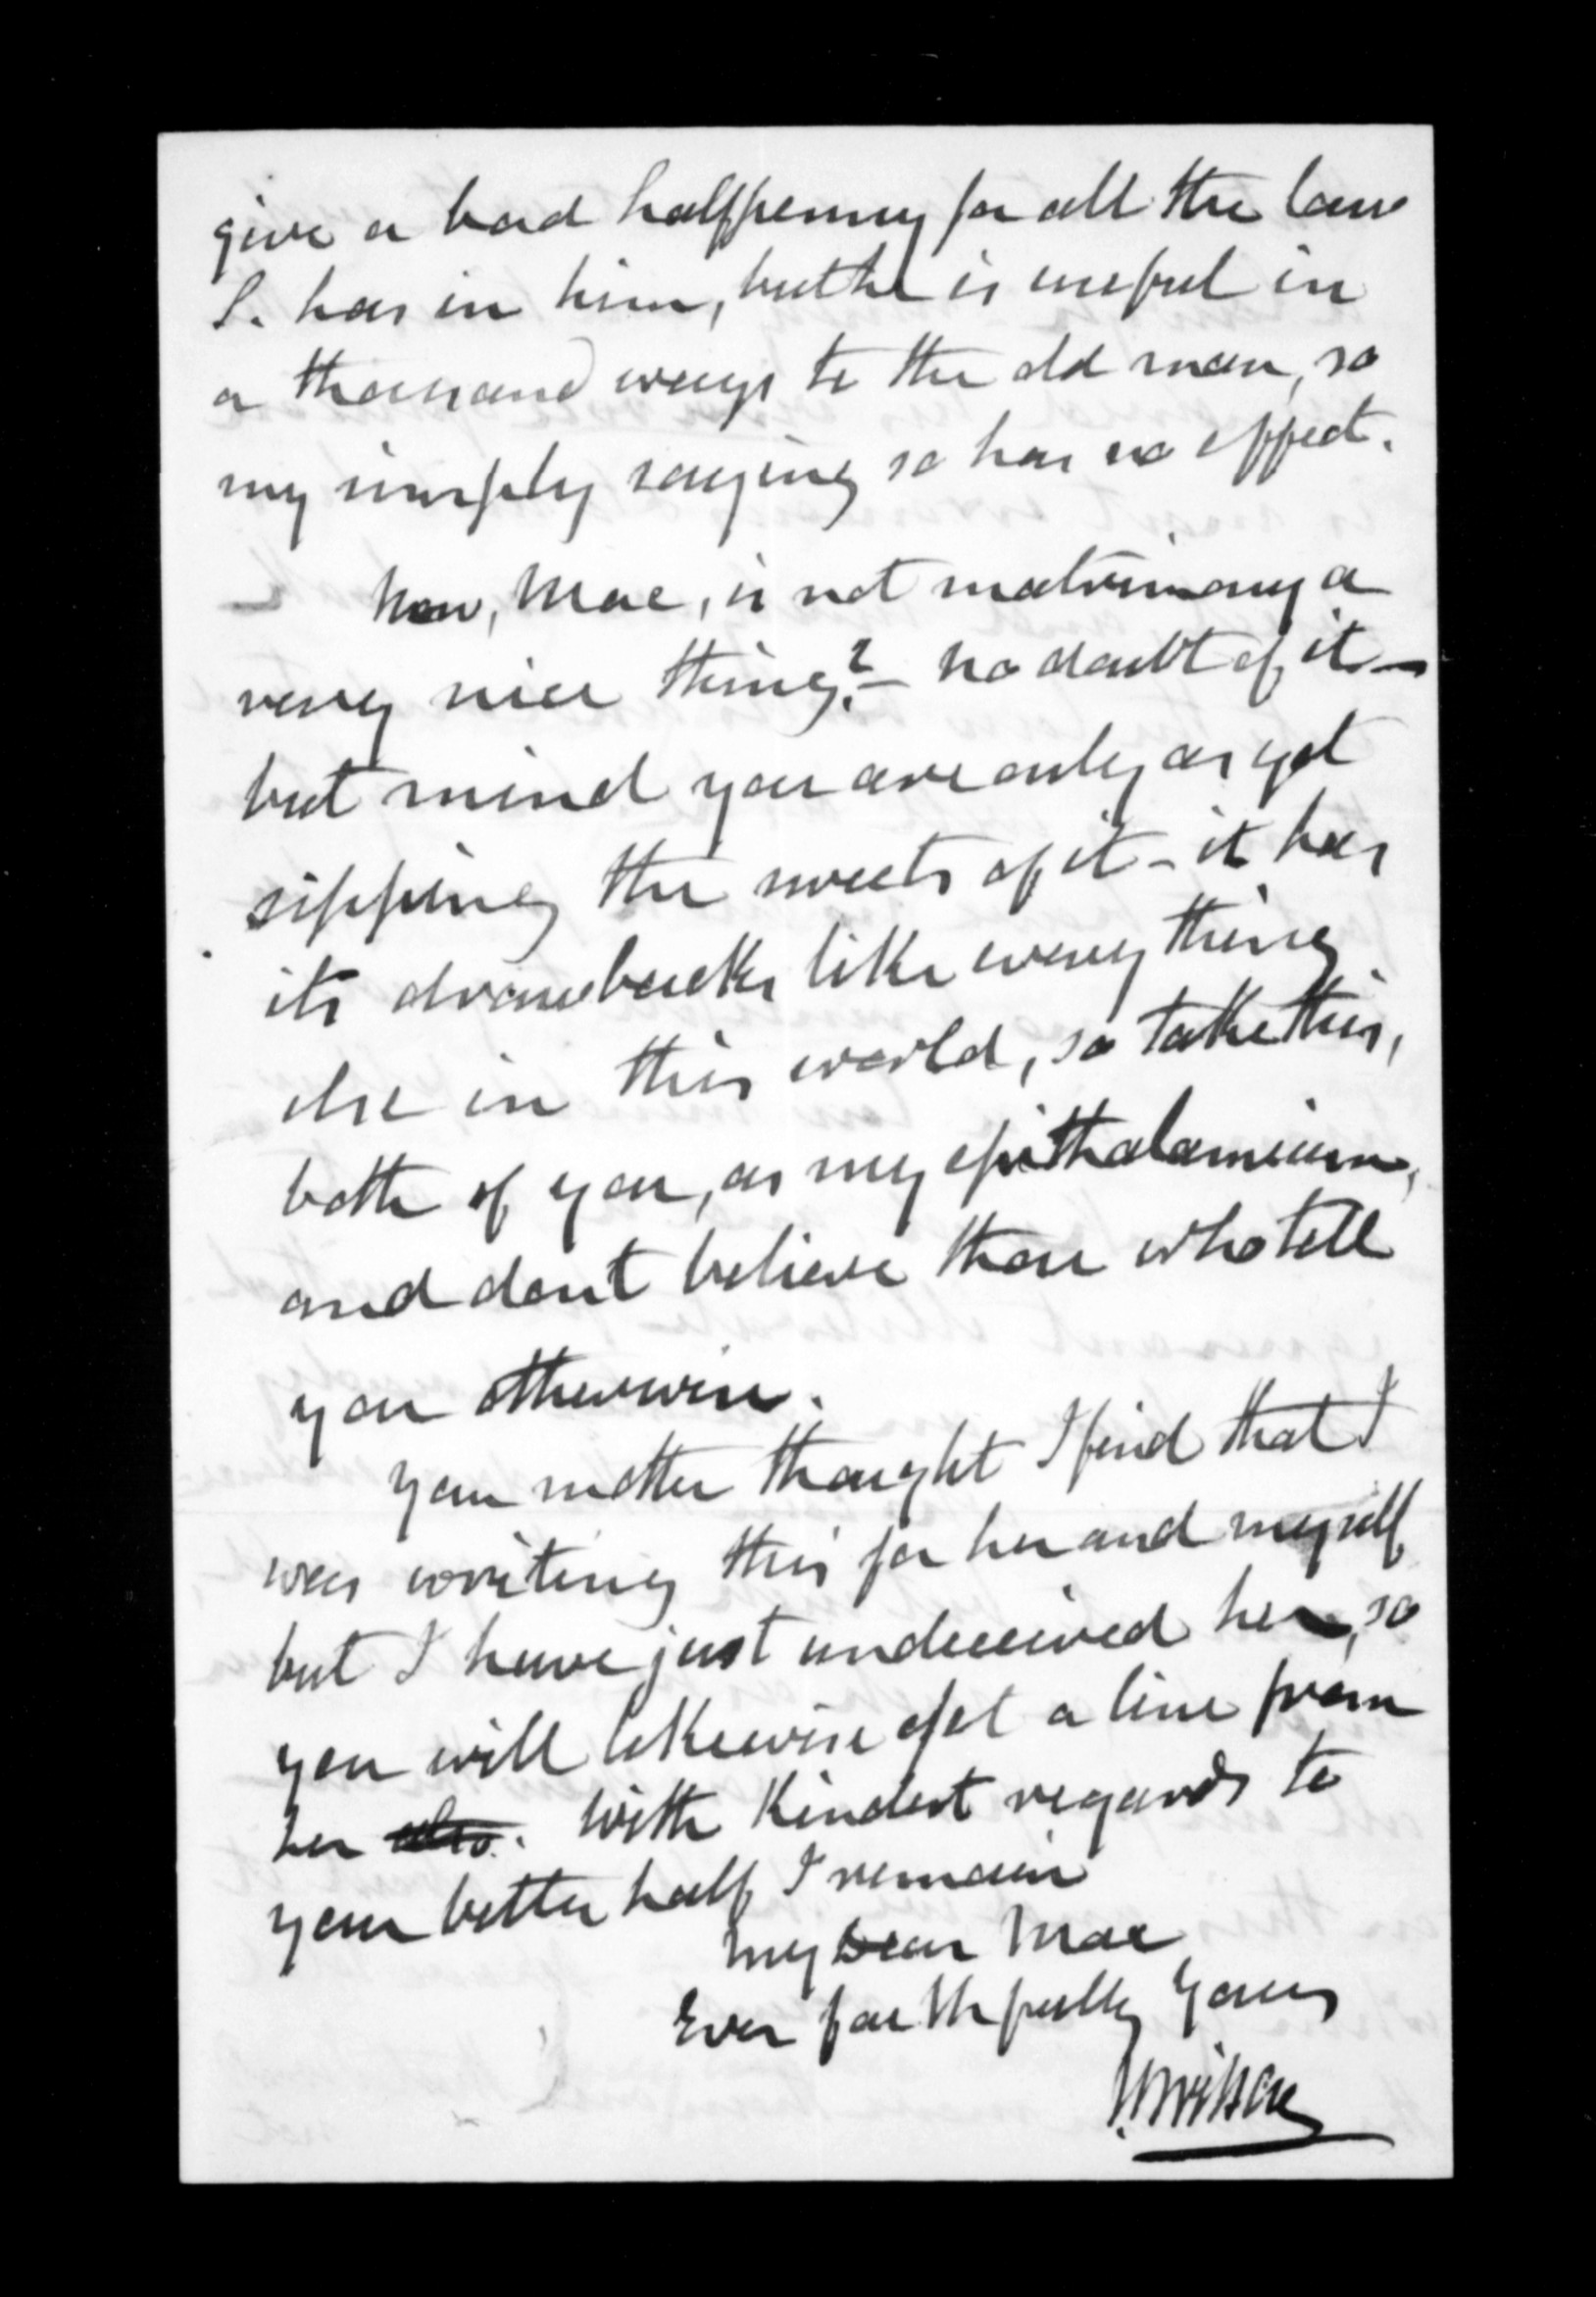 give a bad halfpenny for all the law
S. has in him, but he is useful in
a thousand ways to the old man, so
my simply saying so has no effect.
Now, Mac, is not matrimony a
very nice thing? – No doubt of it –
but mind you are only as yet
sipping the sweets of it – it has
its drawbacks like every thing
else in this world, so take this,
both of you, as my epithalamium,
and dont believe those who tell
you otherwise.
Your mother thought I find that I
was writing this for her and myself
but I have just undeceived her, so
you will likewise get a line from
her also. With Kindest regards to
your better half I remain
My Dear Mac
Ever faithfully Yours